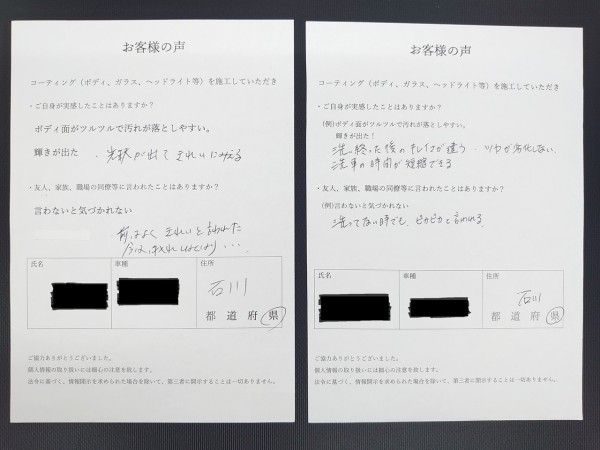 お客様の声
コーティング（ボディ、ガラス、ヘッドライト等）を施工していただき
・ご自身が実感したことはありますか？
ボディ面がツルツルで汚れが落としやすい。
輝きが出た
・光沢が出てきれいにみえる
・友人、家族、職場の同僚等に言われたことはありますか？
言わないと気づかれない
前はよくきれいと言われた
氏名 車種 住所
石川
都 道 府 県
ご協力ありがとうございました。
個人情報の取り扱いには細心の注意を致します。
法令に基づく、情報開示を求められた場合を除いて、第三者に開示することは一切ありません。
お客様の声
コーティング（ボディ、ガラス、ヘッドライト等）を施工していただき
・ご自身が実感したことはありますか？
(例)ボディ面がツルツルで汚れが落としやすい。
輝きが出た！
洗い終った後のキレイさが違う ・ツヤが劣化しない
洗車の時間が短縮できる
・友人、家族、職場の同僚等に言われたことはありますか？
(例)言わないと気づかれない
洗ってない時でも、ピカピカと言われる
氏名 車種 住所
石川
都 道 府 県
ご協力ありがとうございました。
個人情報の取り扱いには細心の注意を致します。
法令に基づく、情報開示を求められた場合を除いて、第三者に開示することは一切ありません。